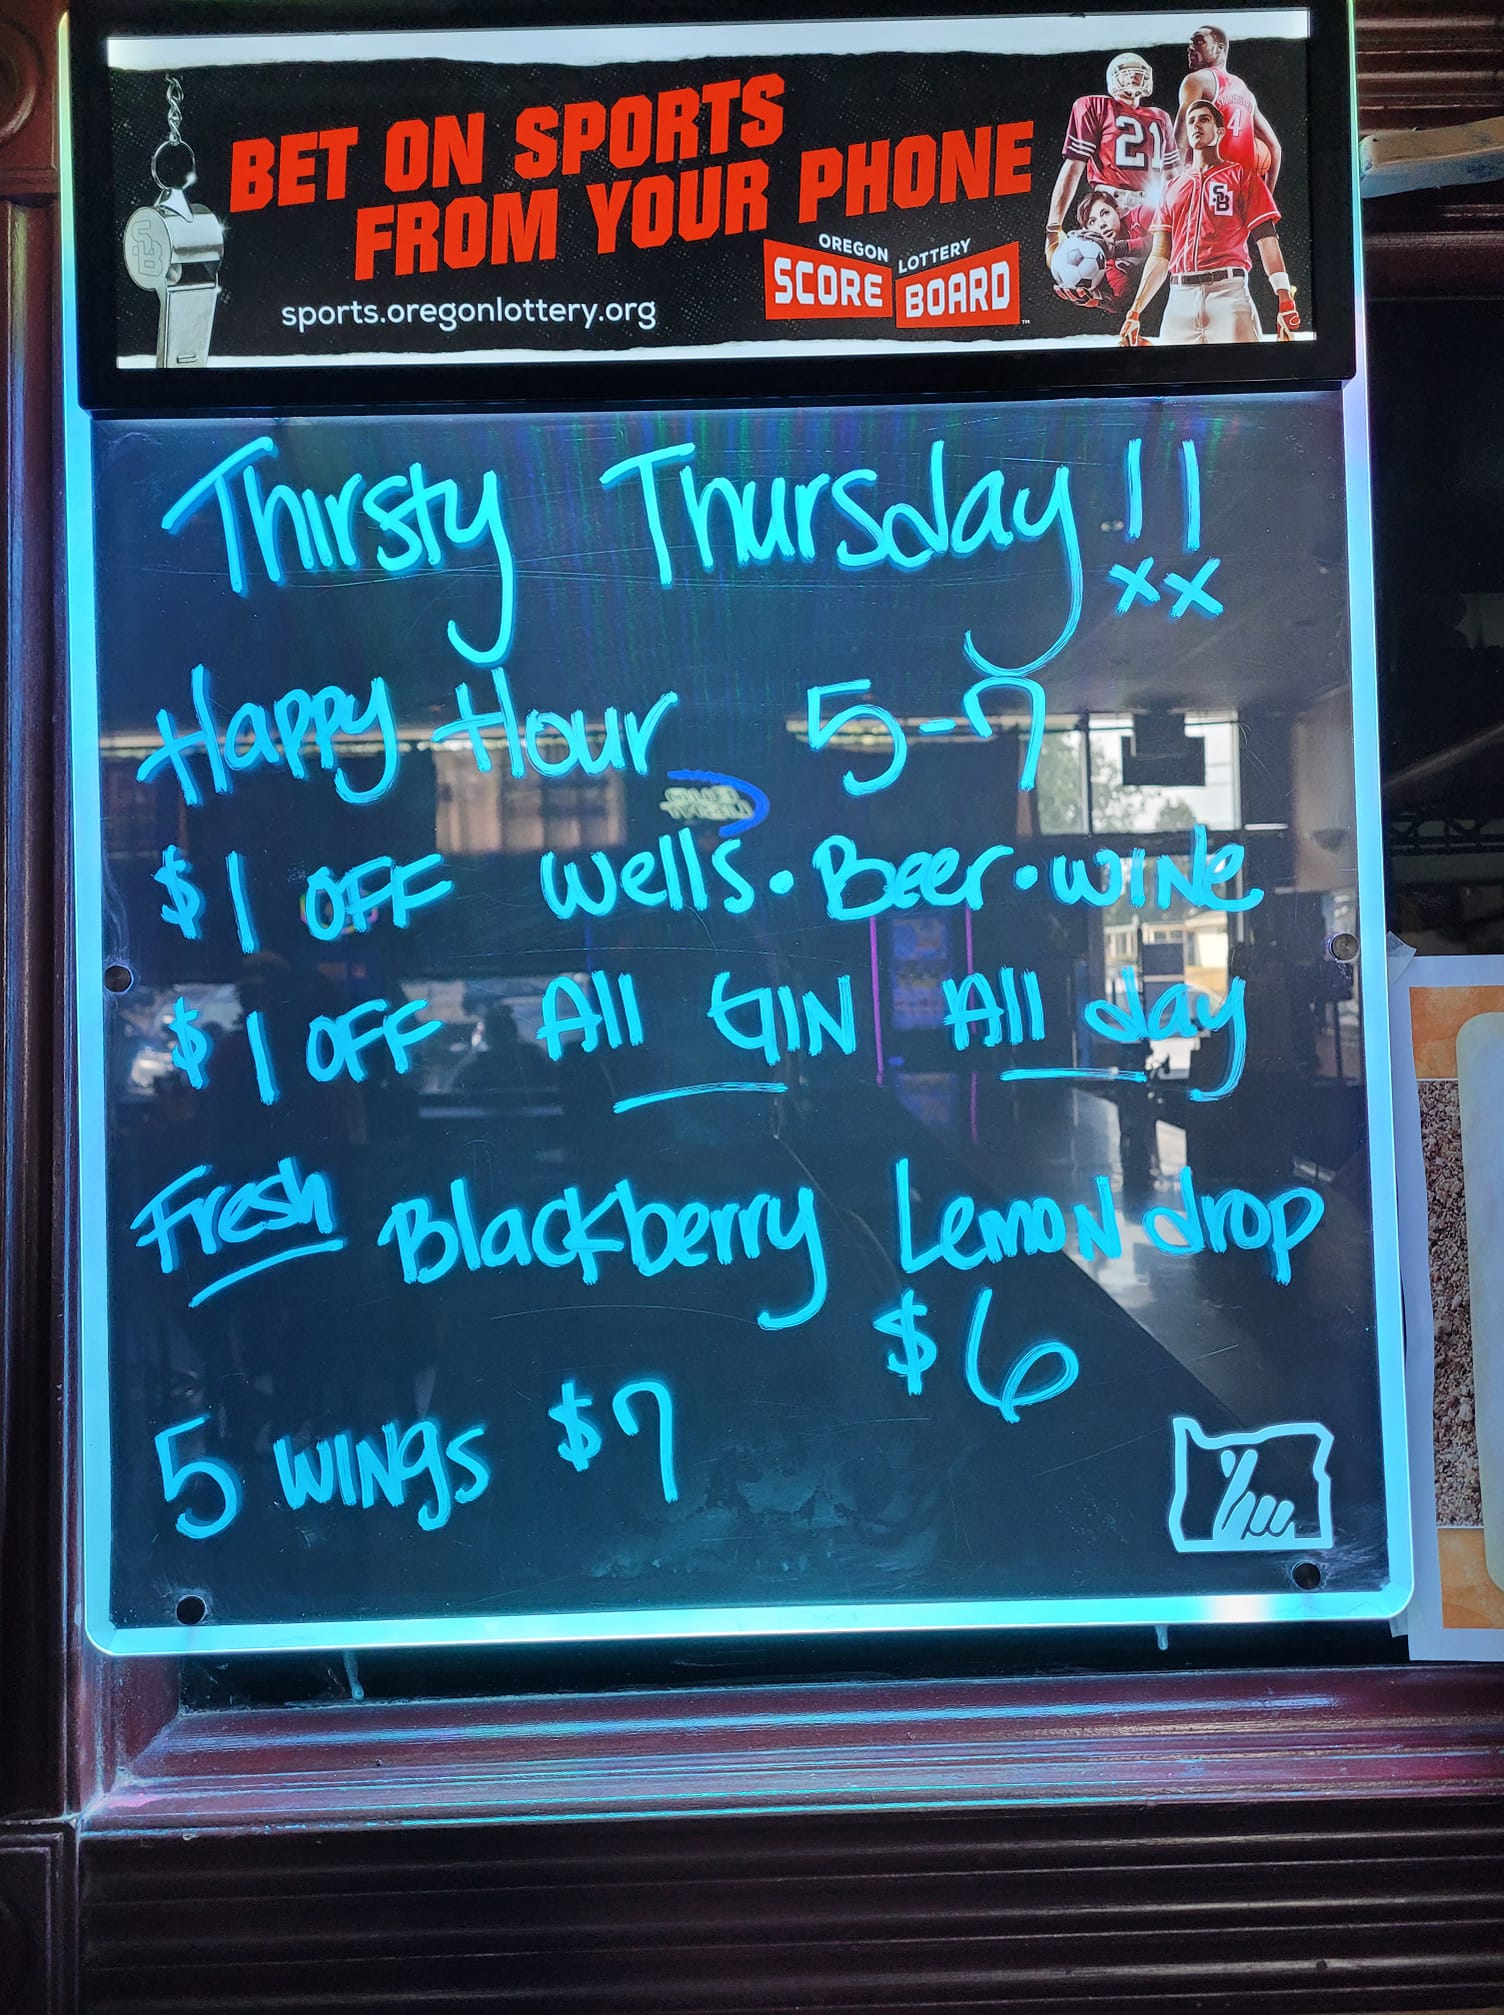 BET ON SPORTS
FROM YOUR PHONE
OREGON LOTTERY
SCORE BOARD™
sports.oregonlottery.org
SB
21
4
SB
Thirsty Thursday!!
xx
Happy Hour 5-7
$1 OFF Wells • Beer • WINe
$1 OFF All GIN All day
Fresh Blackberry LemoN drop
$6
5 WINgs $7